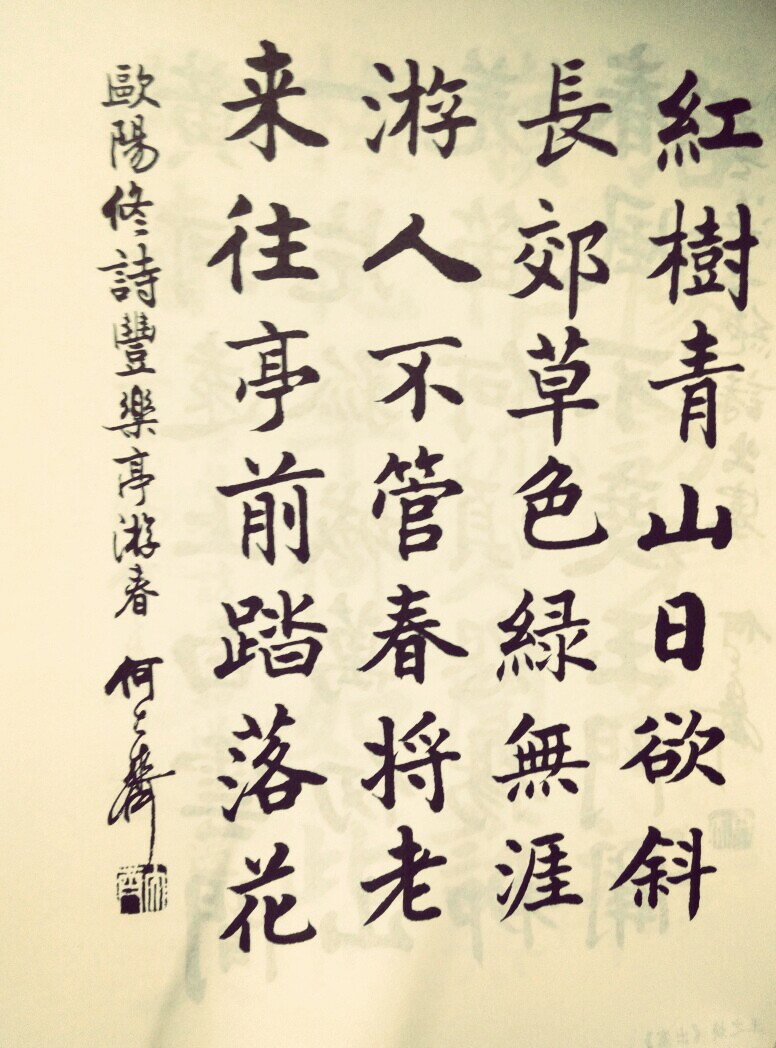 紅樹青山日欲斜
長郊草色緑無涯
游人不管春将老
来往亭前踏落花
歐陽修詩豐樂亭游春 何